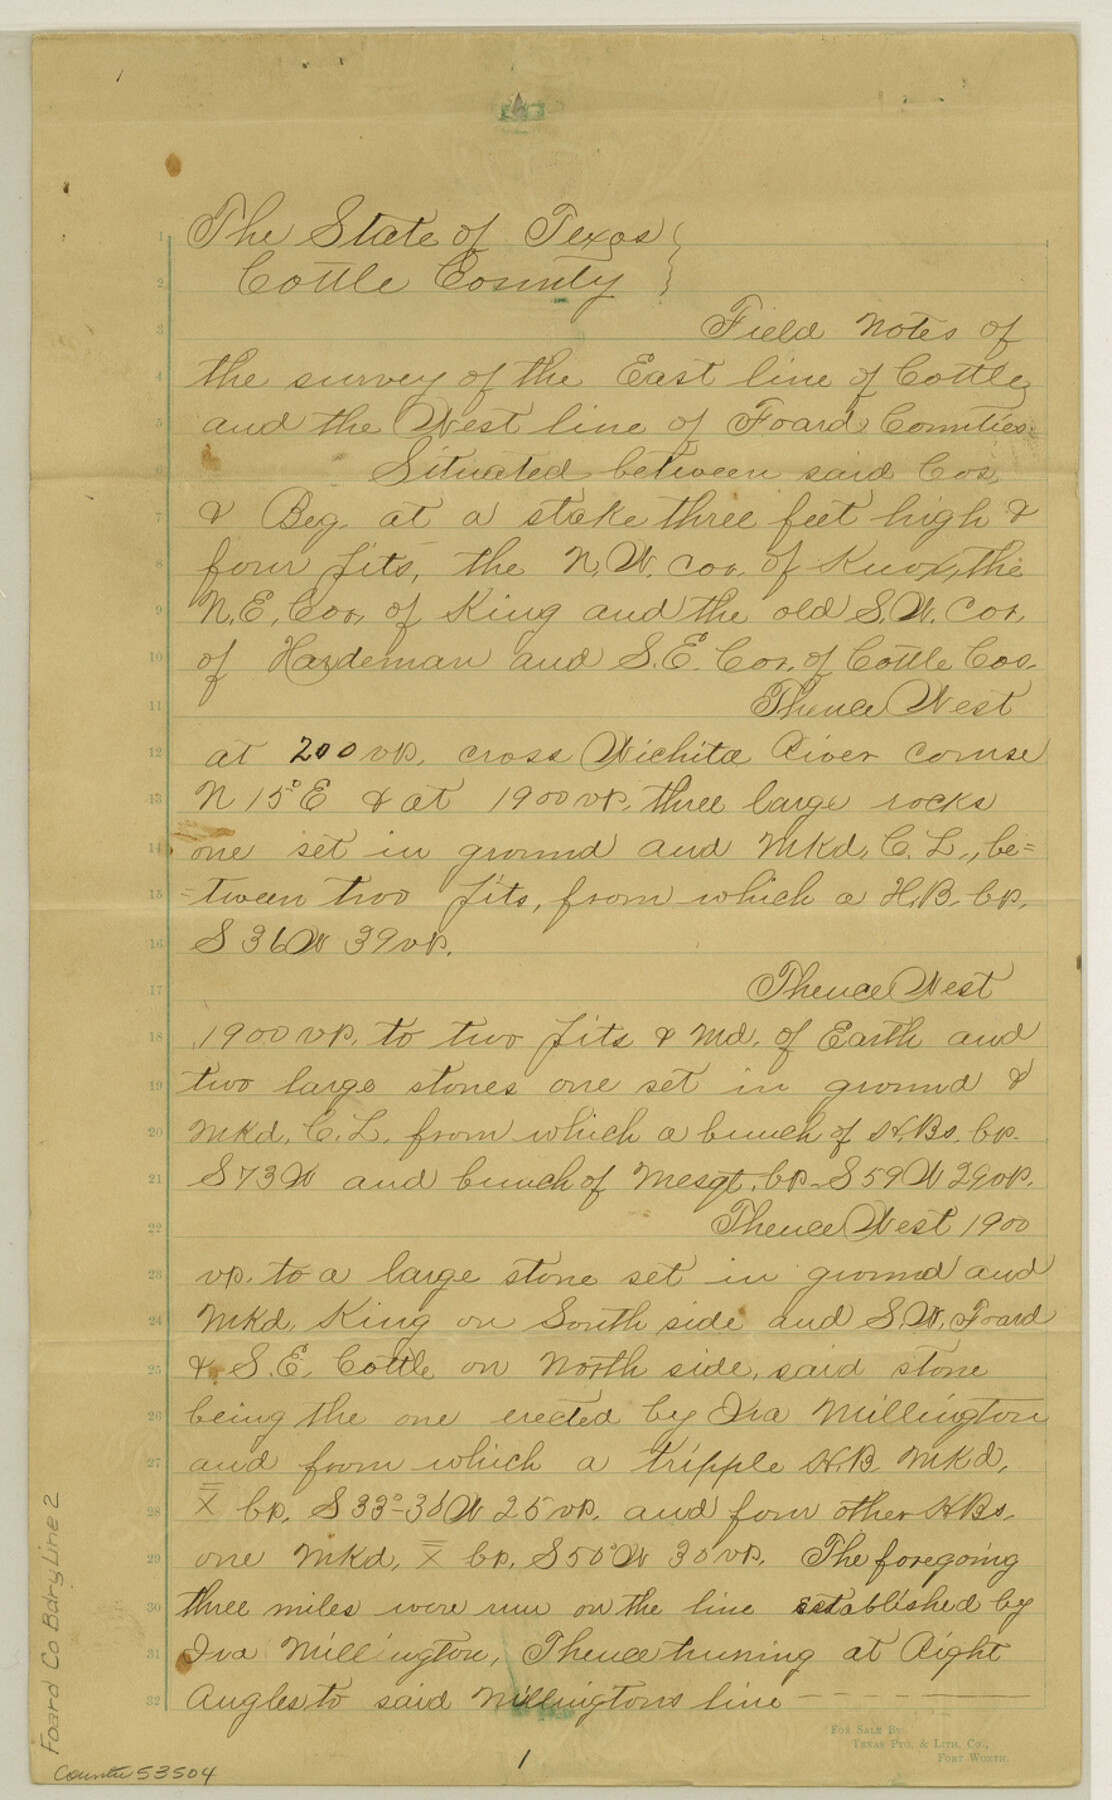 The State of Texas }
Cottle County }
Field Notes of
the survey of the East line of Cottle
and the West line of Foard Counties.
Situated between said Cos.
& Beg. at a stake three feet high &
four pits, the N.W. cor. of Knox, the
N.E. Cor. of King and the old S.W. Cor.
of Hardeman and S.E. Cor. of Cottle Cos.
Thence West
at 200 vrs. cross Wichita River course
N 15° E & at 1900 vrs. three large rocks
one set in ground and Mkd. C. L., be=
=tween two pits, from which a H.B. brs.
S 36 W 39 vrs.
Thence West
1900 vrs. to two pits & Md. of Earth and
two large stones one set in ground &
Mkd. C. L. from which a bunch of H.Bs. brs.
S 73 W and bunch of Mesqt. brs S 59 W 29 vrs.
Thence West 1900
vrs. to a large stone set in ground and
Mkd. King on South side and S.W. Foard
& S.E. Cottle on North side, said stone
being the one erected by Ira Millington
and from which a tripple H.B. Mkd.
X brs. S 33°-30 W 25 vrs. and four other H.Bs.
one Mkd. X brs. S 50° W 30 vrs. The foregoing
three miles were run on the line established by
Ira Millington, Thence turning at Right
Angles to said Millingtons line
1 2 3 4 5 6 7 8 9 10 11 12 13 14 15 16 17 18 19 20 21 22 23 24 25 26 27 28 29 30 31 32
For Sale By
Texas Ptg. & Lith. Co.,
Fort Worth.
1
Foard Co Bdry Line 2
Counter 53504